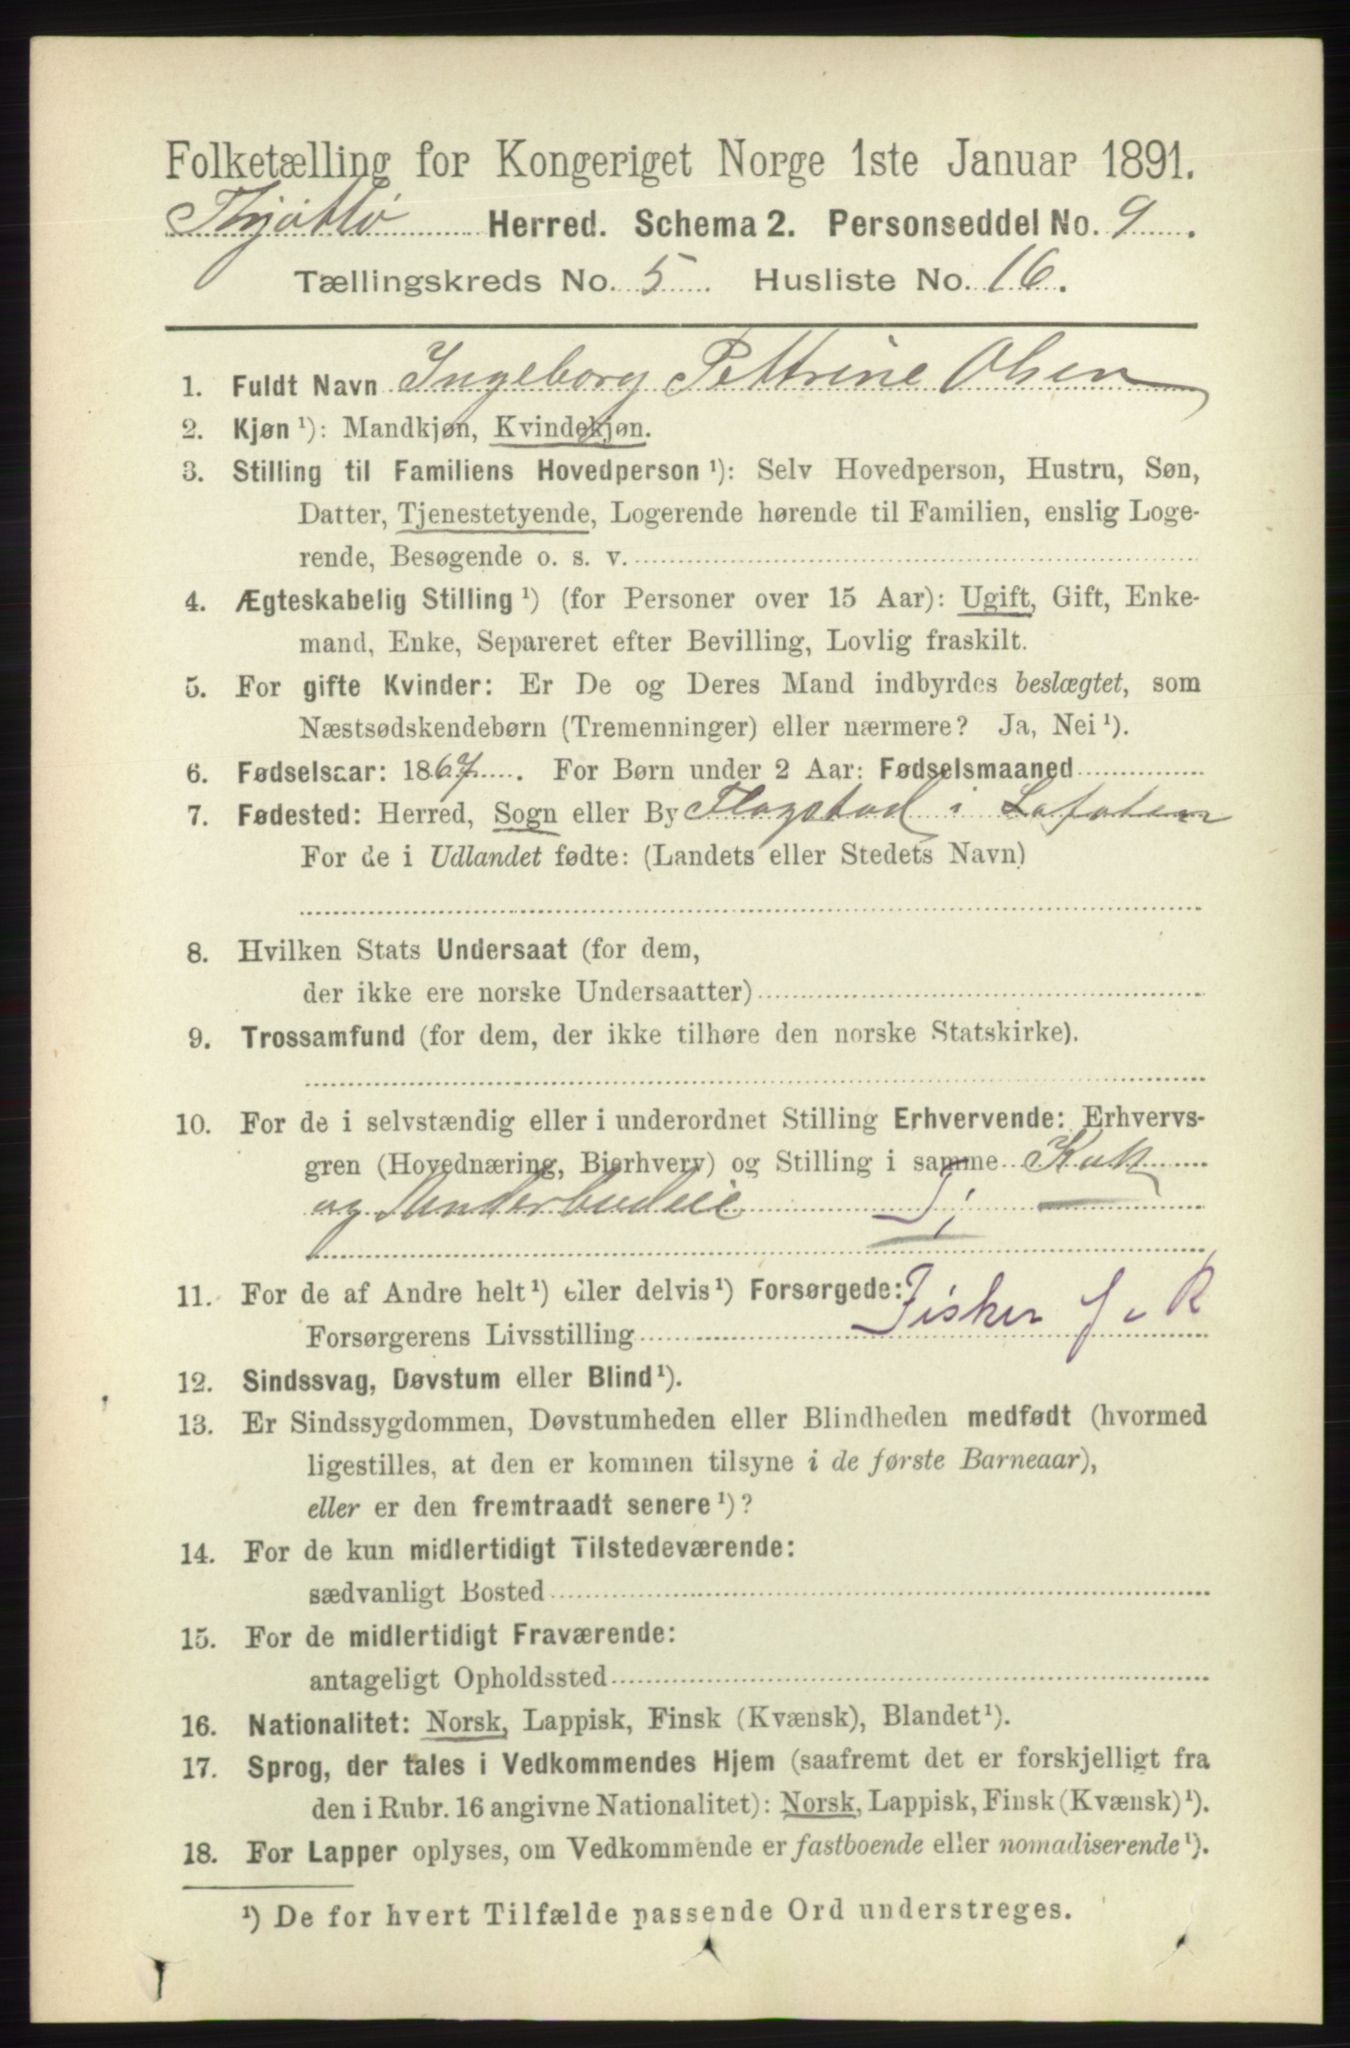 Folketælling for Kongeriget Norge 1ste Januar 1891.
Thjøttø Herred. Schema 2. Personseddel No. 9.
Tællingskreds No. 5. Husliste No. 16.
1. Fuldt Navn Ingeborg Pettrine Olsen
2. Kjøn ¹): Mandkjøn, Kvindekjøn.
3. Stilling til Familiens Hovedperson ¹): Selv Hovedperson, Hustru, Søn,
Datter, Tjenestetyende, Logerende hørende til Familien, enslig Loge-
rende, Besøgende o. s. v.
4. Ægteskabelig Stilling ¹) (for Personer over 15 Aar): Ugift, Gift, Enke-
mand, Enke, Separeret efter Bevilling, Lovlig fraskilt.
5. For gifte Kvinder: Er De og Deres Mand indbyrdes beslægtet, som
Næstsødskendebørn (Tremenninger) eller nærmere? Ja, Nei ¹).
6. Fødselsaar: 1867. For Børn under 2 Aar: Fødselsmaaned
7. Fødested: Herred, Sogn eller By Flagstad i Lofoten
For de i Udlandet fødte: (Landets eller Stedets Navn)
8. Hvilken Stats Undersaat (for dem,
der ikke ere norske Undersaatter)
9. Trossamfund (for dem, der ikke tilhøre den norske Statskirke).
10. For de i selvstændig eller i underordnet Stilling Erhvervende: Erhvervs-
gren (Hovednæring, Bierhverv) og Stilling i samme Kok
og Underbudeie Tj
11. For de af Andre helt ¹) eller delvis ¹) Forsørgede:
Forsørgerens Livsstilling Fisker
12. Sindssvag, Døvstum eller Blind ¹).
13. Er Sindssygdommen, Døvstumheden eller Blindheden medfødt (hvormed
ligestilles, at den er kommen tilsyne i de første Barneaar),
eller er den fremtraadt senere ¹)?
14. For de kun midlertidigt Tilstedeværende:
sædvanligt Bosted
15. For de midlertidigt Fraværende:
antageligt Opholdssted
16. Nationalitet: Norsk, Lappisk, Finsk (Kvænsk), Blandet ¹).
17. Sprog, der tales i Vedkommendes Hjem (saafremt det er forskjelligt fra
den i Rubr. 16 angivne Nationalitet): Norsk, Lappisk, Finsk (Kvænsk) ¹).
18. For Lapper oplyses, om Vedkommende er fastboende eller nomadiserende ¹).
¹) De for hvert Tilfælde passende Ord understreges.